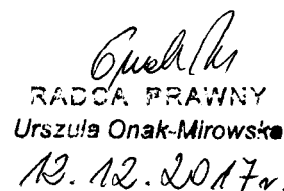 RADCA PRAWNY
Urszula Onak-Mirowska
12.12.2017r.